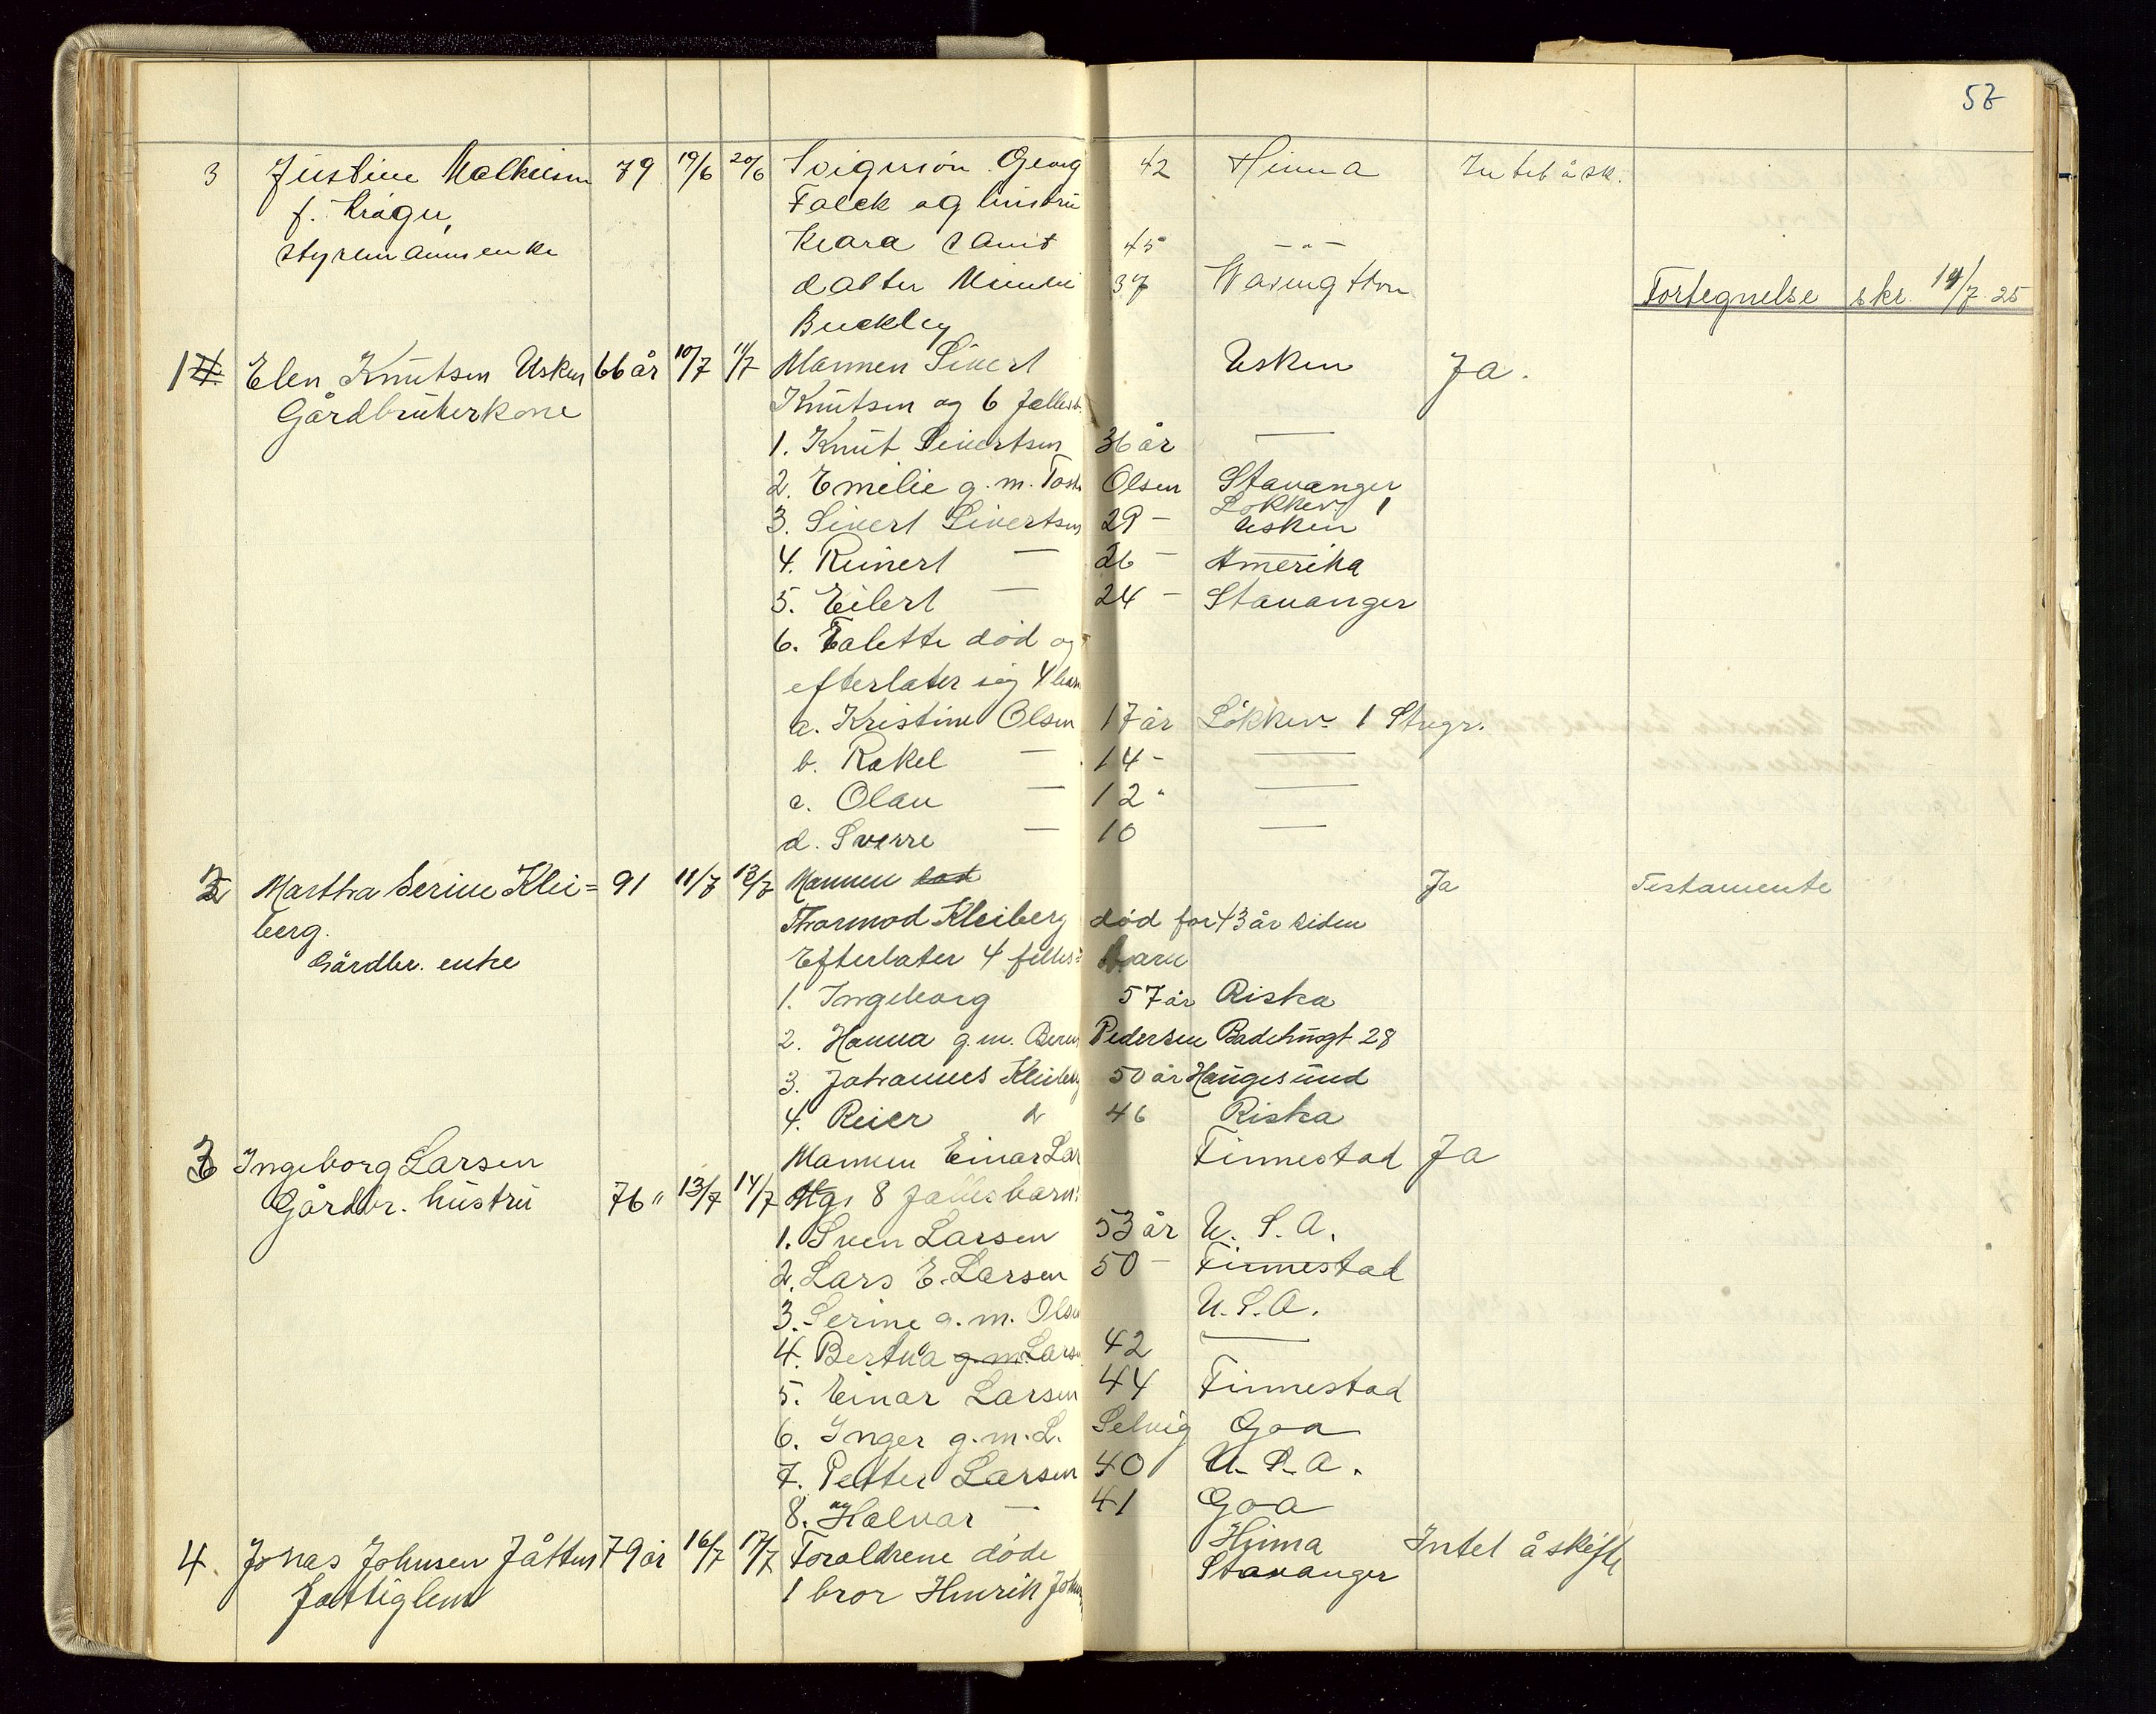 57
3 Justine Malkiesen 79 19/6 20/6 Svigersön Georg 42 Hinna Intet å sk.
f. Kröger, Falck og hustru
styrmannsenke Klara samt 45 - " -
datter Minnie 37 Wasingthon Fortegnelse skr. 14/7 25
Buckley
1 Elen Knutsen Usken 66 år 10/7 11/7 Mannen Sivert Usken Ja.
Gårdbrukerkone Knutsen og 6 fellesb.
1. Knut Sivertsen 36 år —
2. Emilie g. m. Olsen Stavanger
Lökkev. 1
3. Sivert Sivertsen 29 - Usken
4. Reinert — 26 - Amerika
5. Eilert — 24 - Stavanger
6. Talette död og
efterlater sig 4 barn
a. Kristine Olsen 17 år Lökkev. 1 Stvgr.
b. Rakel — 14 - —
c. Olau — 12 " —
d. Sverre — 10 —
2 Martha Serine Klei= 91 11/7 12/7 Mannen Ja Testamente
berg. Thormod Kleiberg död for 43 år siden
Gårdbr. enke Efterlater 4 felles= barn
1. Ingeborg 57 år Riska
2. Hanna g. m. Pedersen Badehusgt 28
3. Johannes Kleiberg 50 år Haugesund
4. Reier 46 Riska
3 Ingeborg Larsen Mannen Einar Lar Finnestad Ja
Gårdbr. hustru 76 " 13/7 14/7 8 fellesbarn:
1. Sven Larsen 53 år U. S. A.
2. Lars E. Larsen 50 - Finnestad
3. Serine g. m. Olsen U. S. A.
4. Bertha g. m. Larsen 42 —
5. Einar Larsen 44 Finnestad
6. Inger g. m. L. Selvig Goa
7. Petter Larsen 40 U. S. A.
8. Halvar — 41 Goa
4. Jonas Johnsen Jåttun 79 år 16/7 17/7 Foreldrene döde Hinna Intet å skifte
Fattiglem 1 bror Henrik Johnsen Stavanger